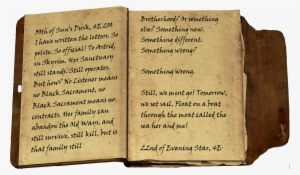 30th of Sun's Dusk, 4E 200
I have written the letters. So
polite. So official! To Astrid,
in Skyrim. Her Sanctuary
still stands. Still operates.
But how? No Listener means
no Black Sacrament, no
Black Sacrament means no
contracts. Her family can
abandon the Old Ways, and
still survive, still kill, but is
that family still
Brotherhood? Or something
else? Something new.
Something different.
Something wrong?
Something wrong.
Still, we must go! Tomorrow,
we set sail. Float on a boat
through the meat called the
sea her and me!
22nd of Evening Star, 4E